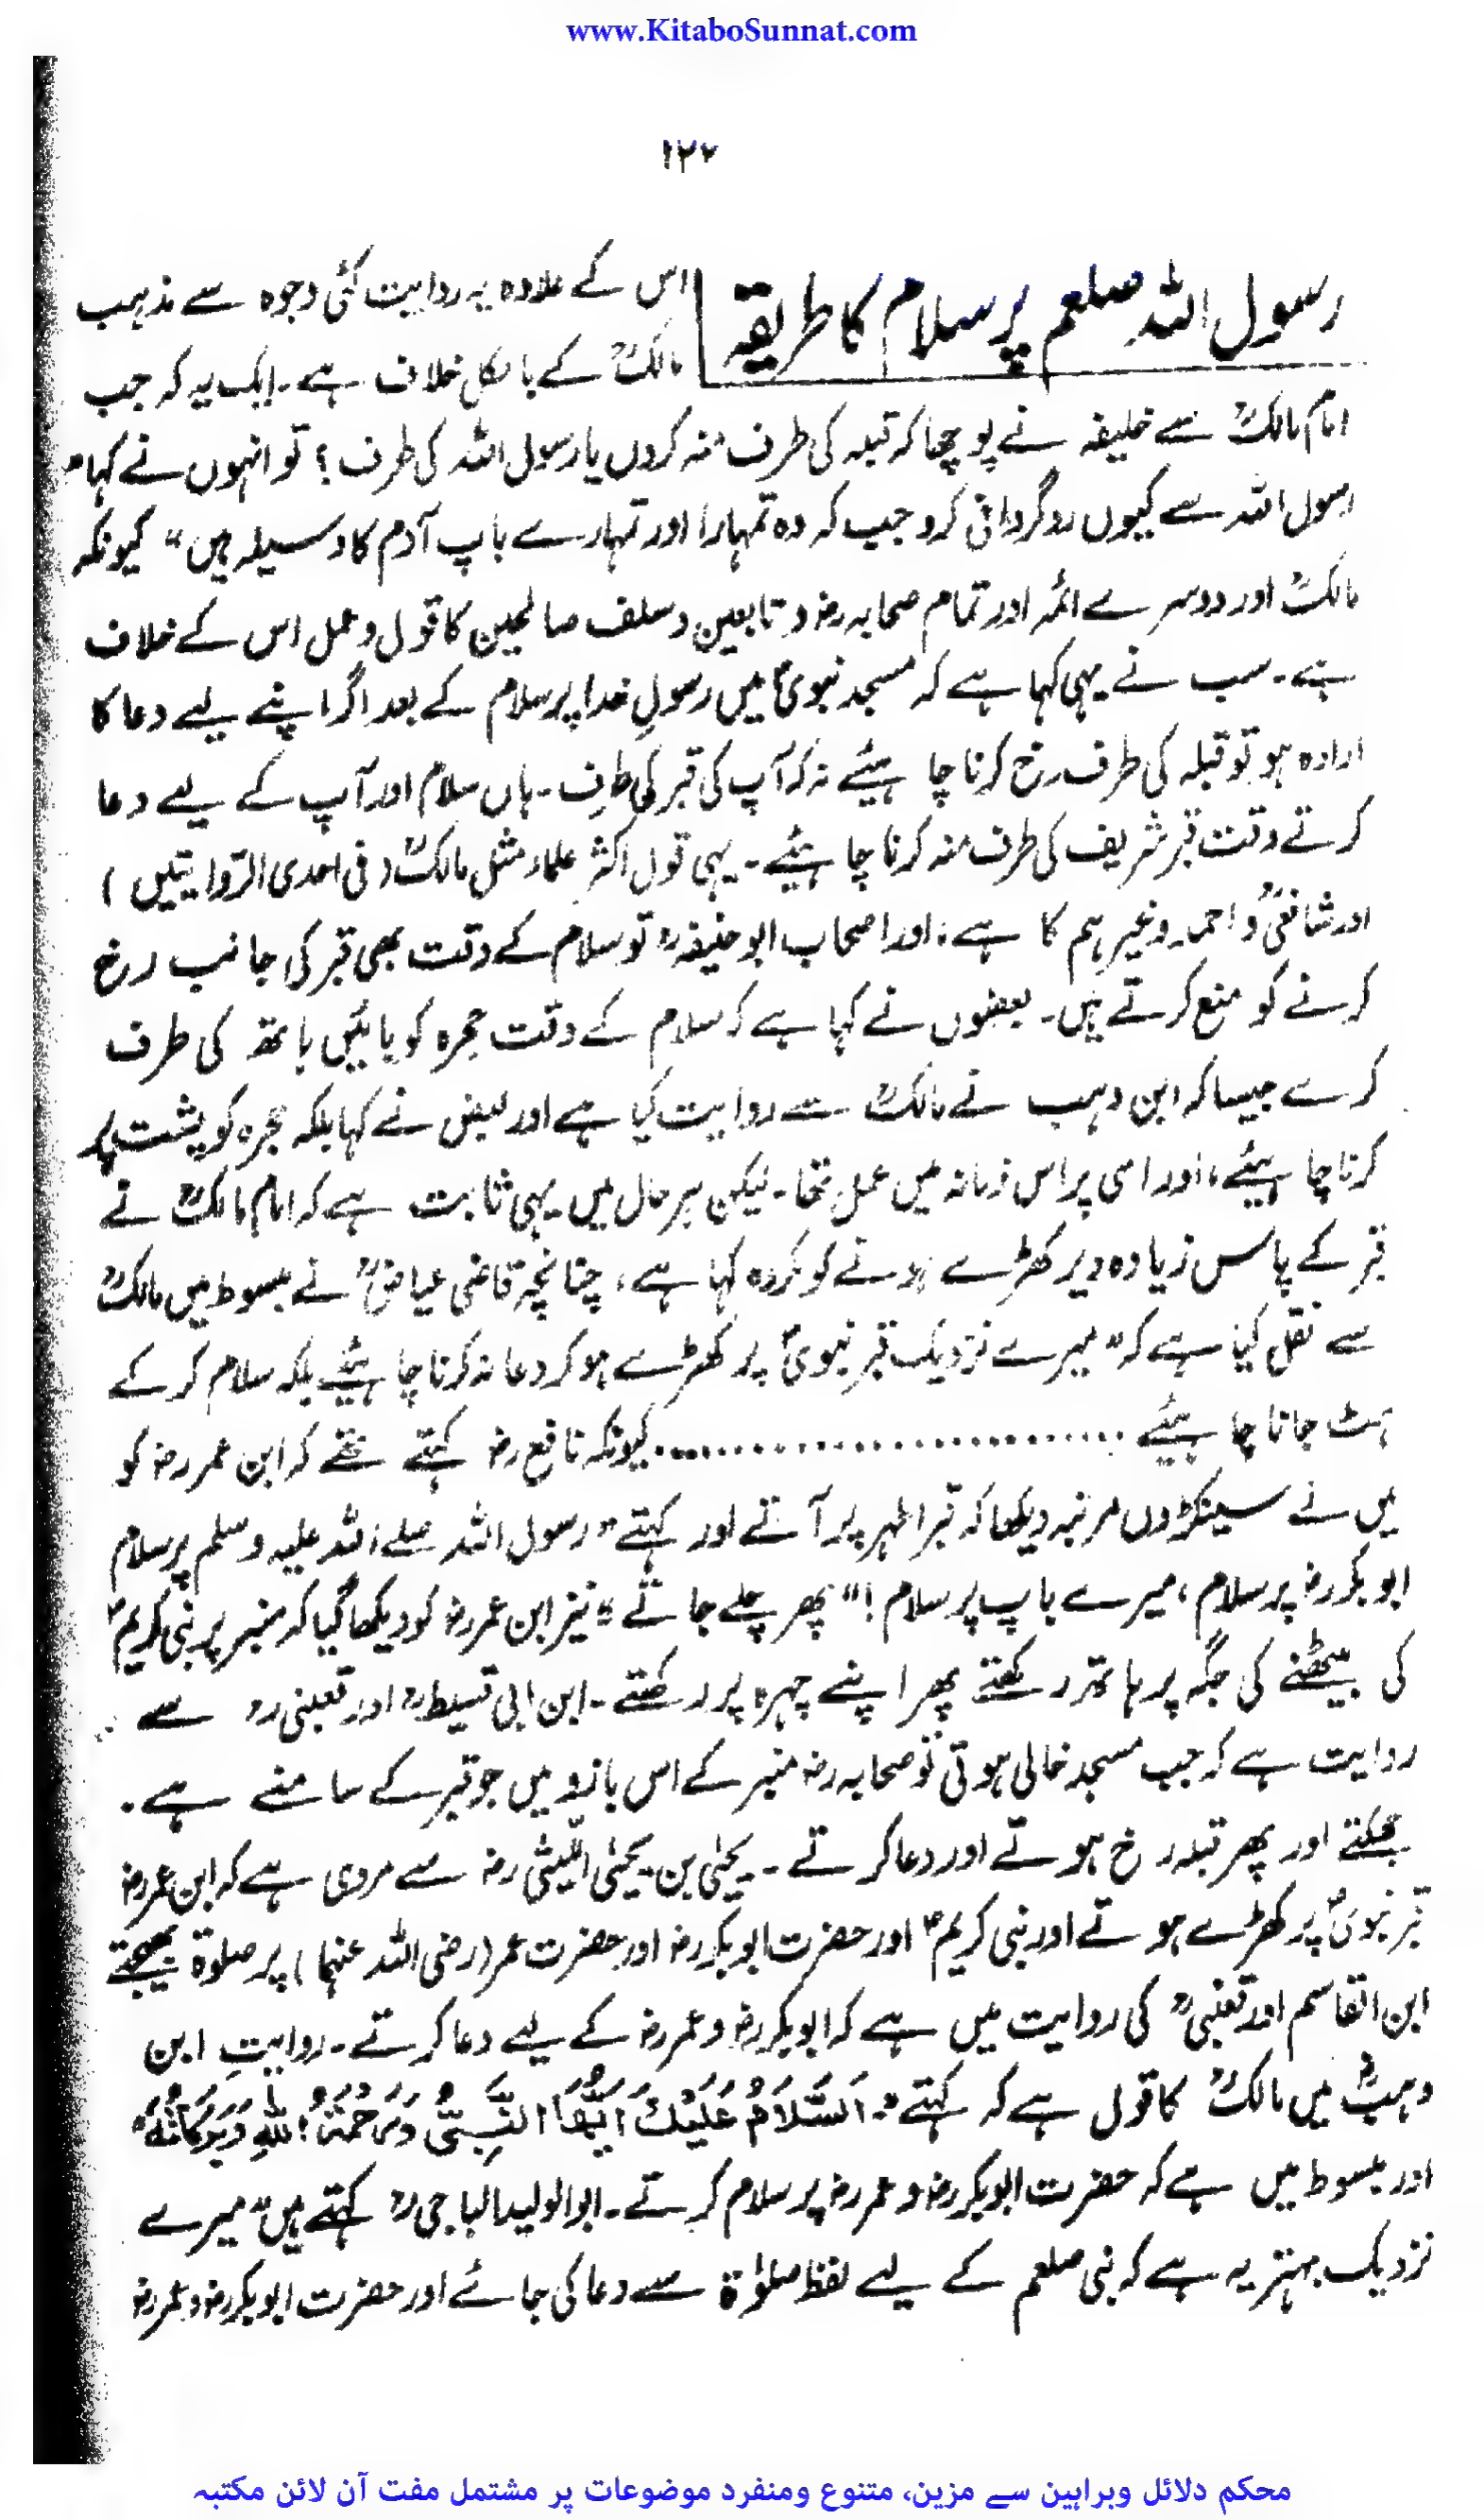 www.KitaboSunnat.com
۱۲۲
رسول اللہ صلعم پر سلام کا طریقہ
اس کے علاوہ یہ روایت کئی وجوہ سے مذہب
مالکؒ کے بالکل خلاف ہے۔ ایک یہ کہ جب
امام مالکؒ سے خلیفہ نے پوچھا کہ قبلہ کی طرف منہ کروں یا رسول اللہ کی طرف؟ تو انہوں نے کہا "
رسول اللہ سے کیوں روگردانی کرو جب کہ وہ تمہارا اور تمہارے باپ آدم کا وسیلہ ہیں" کیونکہ
مالکؒ اور دوسرے ائمہ اور تمام صحابہ رضہ و تابعین و سلف صالحین کا قول و عمل اس کے خلاف
ہے۔ سب نے یہی کہا ہے کہ مسجد نبویؐ میں رسولِ خدا پر سلام کے بعد اگر اپنے لیے دعا کا
ارادہ ہو تو قبلہ کی طرف رخ کرنا چاہیئے نہ کہ آپ کی قبر کی طرف۔ ہاں سلام اور آپ کے لیے دعا
کرتے وقت قبر شریف کی طرف منہ کرنا چاہیئے۔ یہی قول اکثر علماء مثل مالکؒ (فی احدی الروایتیں)
اور شافعیؒ و احمد وغیرہم کا ہے، اور اصحاب ابو حنیفہؒ تو سلام کے وقت بھی قبر کی جانب رخ
کرنے کو منع کرتے ہیں۔ بعضوں نے کہا ہے کہ سلام کے وقت حجرہ کو بائیں ہاتھ کی طرف
کرے جیسا کہ ابن وہب نے مالکؒ سے روایت کیا ہے اور بعض نے کہا بلکہ حجرہ کو پشت پر
کرنا چاہیئے، اور اسی پر اس زمانہ میں عمل تھا۔ لیکن ہر حال میں یہی ثابت ہے کہ امام مالکؒ نے
قبر کے پاس زیادہ دیر کھڑے ہونے کو مکروہ کہا ہے، چنانچہ قاضی عیاضؒ نے مبسوط میں مالکؒ
سے نقل کیا ہے کہ "میرے نزدیک قبر نبویؐ پر کھڑے ہو کر دعا نہ کرنا چاہیئے بلکہ سلام کر کے
ہٹ جانا چاہیئے ........................... کیونکہ نافع رضہ کہتے تھے کہ ابن عمر رضہ کو
میں نے سینکڑوں مرتبہ دیکھا کہ قبر اطہر پر آتے اور کہتے "رسول اللہ صلے اللہ علیہ وسلم پر سلام
ابوبکر رضہ پر سلام، میرے باپ پر سلام!" پھر چلے جاتے" نیز ابن عمر رضہ کو دیکھا گیا کہ منبر پر نبی کریمؐ
کی بیٹھنے کی جگہ پر ہاتھ رکھتے پھر اپنے چہرہ پر رکھتے۔ ابن ابی قسیطؒ اور قعبنیؒ سے
روایت ہے کہ جب مسجد خالی ہوتی تو صحابہ رضہ منبر کے اس بازو میں جو قبر کے سامنے ہے۔
جھکتے اور پھر قبلہ رخ ہوتے اور دعا کرتے۔ یحیٰی بن یحیٰی اللیثی رضہ سے مروی ہے کہ ابن عمر رضہ
قبر نبویؐ پر کھڑے ہوتے اور نبی کریمؐ اور حضرت ابوبکر رضہ اور حضرت عمر (رضی اللہ عنہما) پر صلوۃ بھیجتے
ابن القاسم اور قعنبیؒ کی روایت میں ہے کہ ابوبکر رضہ و عمر رضہ کے لیے دعا کرتے۔ روایتِ ابن
وہبؒ میں مالکؒ کا قول ہے کہ کہتے "اَلسَّلَامُ عَلَيْكَ اَيُّهَا النَّبِيُّ وَرَحْمَةُ اللّٰهِ وَبَرَكَاتُهُ"
اور مبسوط میں ہے کہ حضرت ابوبکر رضہ و عمر رضہ پر سلام کرتے۔ ابو الولید الباجیؒ کہتے ہیں "میرے
نزدیک بہتر یہ ہے کہ نبی صلعم کے لیے لفظ صلوٰۃ سے دعا کی جائے اور حضرت ابوبکر رضہ و عمر رضہ
محکم دلائل وبراہین سے مزین، متنوع ومنفرد موضوعات پر مشتمل مفت آن لائن مکتبہ